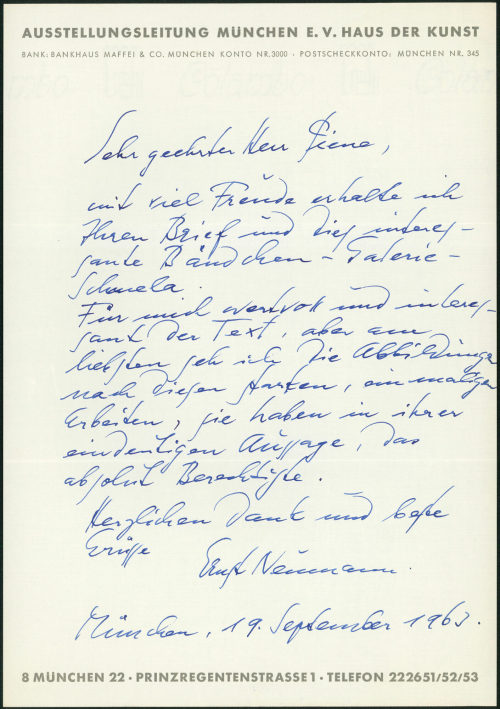 AUSSTELLUNGSLEITUNG MÜNCHEN E. V. HAUS DER KUNST
BANK: BANKHAUS MAFFEI & CO. MÜNCHEN KONTO NR. 3000 · POSTSCHECKKONTO: MÜNCHEN NR. 345
Sehr geehrter Herr Piene,
mit viel Freude erhalte ich
Ihren Brief und dies interes-
sante Bändchen – Galerie –
Schmela.
Für mich wertvoll und interes-
sant der Text, aber am
liebsten seh ich die Abbildungen
nach diesen starken, einmaligen
Arbeiten, sie haben in ihrer
eindeutigen Aussage, das
absolut Berechtigte.
Herzlichen Dank und beste
Grüsse
Ernst Neumann.
München, 19. September 1963.
8 MÜNCHEN 22 · PRINZREGENTENSTRASSE 1 · TELEFON 222651/52/53